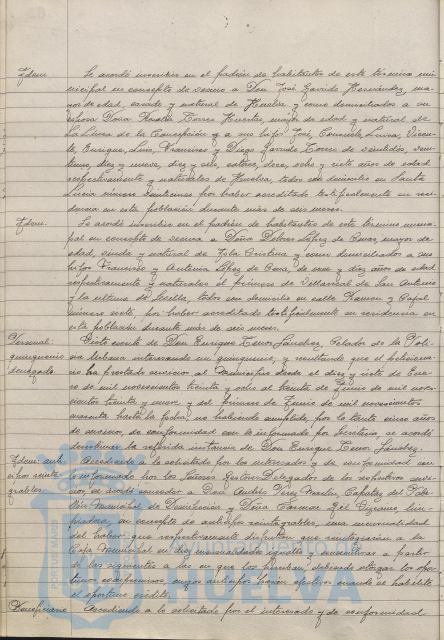 Idem. Se acordó inscribir en el padrón de habitantes de este término mu-
nicipal en concepto de vecino a Don José Garrido Hernández, ma-
yor de edad, casado y natural de Huelva y como domiciliados a su
esposa Doña Torres Huertas, mayor de edad y natural de
La Línea de la Concepción y a sus hijos José, Consuelo, Luisa, Vicen-
te, Enrique, Luis, Francisco y Diego Garrido Torres de veintidós, vein-
tiuno, diez y nueve, diez y seis, catorce, doce, ocho y siete años de edad
respectivamente y naturales de Huelva, todos con domicilio en Santa
Lucía número veinticinco por haber acreditado testificalmente su resi-
dencia en esta población durante más de seis meses.
Idem. Se acordó inscribir en el padrón de habitantes de este término munici-
pal en concepto de vecina a Doña Dolores López de Cuevas mayor de
edad, viuda y natural de Isla Cristina y como domiciliados a sus
hijos Francisco y Antonia López de Cera, de once y diez años de edad
respectivamente y naturales el primero de Villarreal de San Antonio
y la última de Sevilla, todos con domicilio en calle Ramón y Cajal
número siete, por haber acreditado testificalmente su residencia en
esta población durante más de seis meses.
Personal: Visto escrito de Don Enrique Tesoro Sánchez, Celador de la Poli-
quinquenio cía Urbana interesando un quinquenio, y resultando que el peticiona-
denegado. rio ha prestado servicio al Municipio desde el diez y siete de Ene-
ro de mil novecientos treinta y ocho al treinta de Junio de mil nove-
cientos treinta y nueve, y del primero de Junio de mil novecientos
cuarenta hasta la fecha, no habiendo cumplido, por lo tanto cinco años
de servicio, de conformidad con lo informado por Secretaría se acordó
desestimar la referida instancia de Don Enrique Tesoro Sánchez.
Idem: anti- Accediendo a lo solicitado por los interesados y de conformidad con
cipos reinte- lo informado por los Señores Gestores Delegados de los respectivos servi-
grables. cios, se acordó conceder a Don Andrés Pérez Capataz del
Municipal de y Doña Carmen Gil Lim-
piadora, en concepto de anticipos reintegrables, una mensualidad
del haber que respectivamente disfrutan que reintegrarán a la
Caja Municipal en diez mensualidades iguales y consecutivas a partir
de las siguientes a las en que los perciban, debiendo otorgar los opor-
tunos compromisos, cuyos anticipos harán efectivos cuando se habilite
el oportuno crédito.
Accediendo a lo solicitado por el interesado y de conformidad
PORTUS MARIS
HUELVA